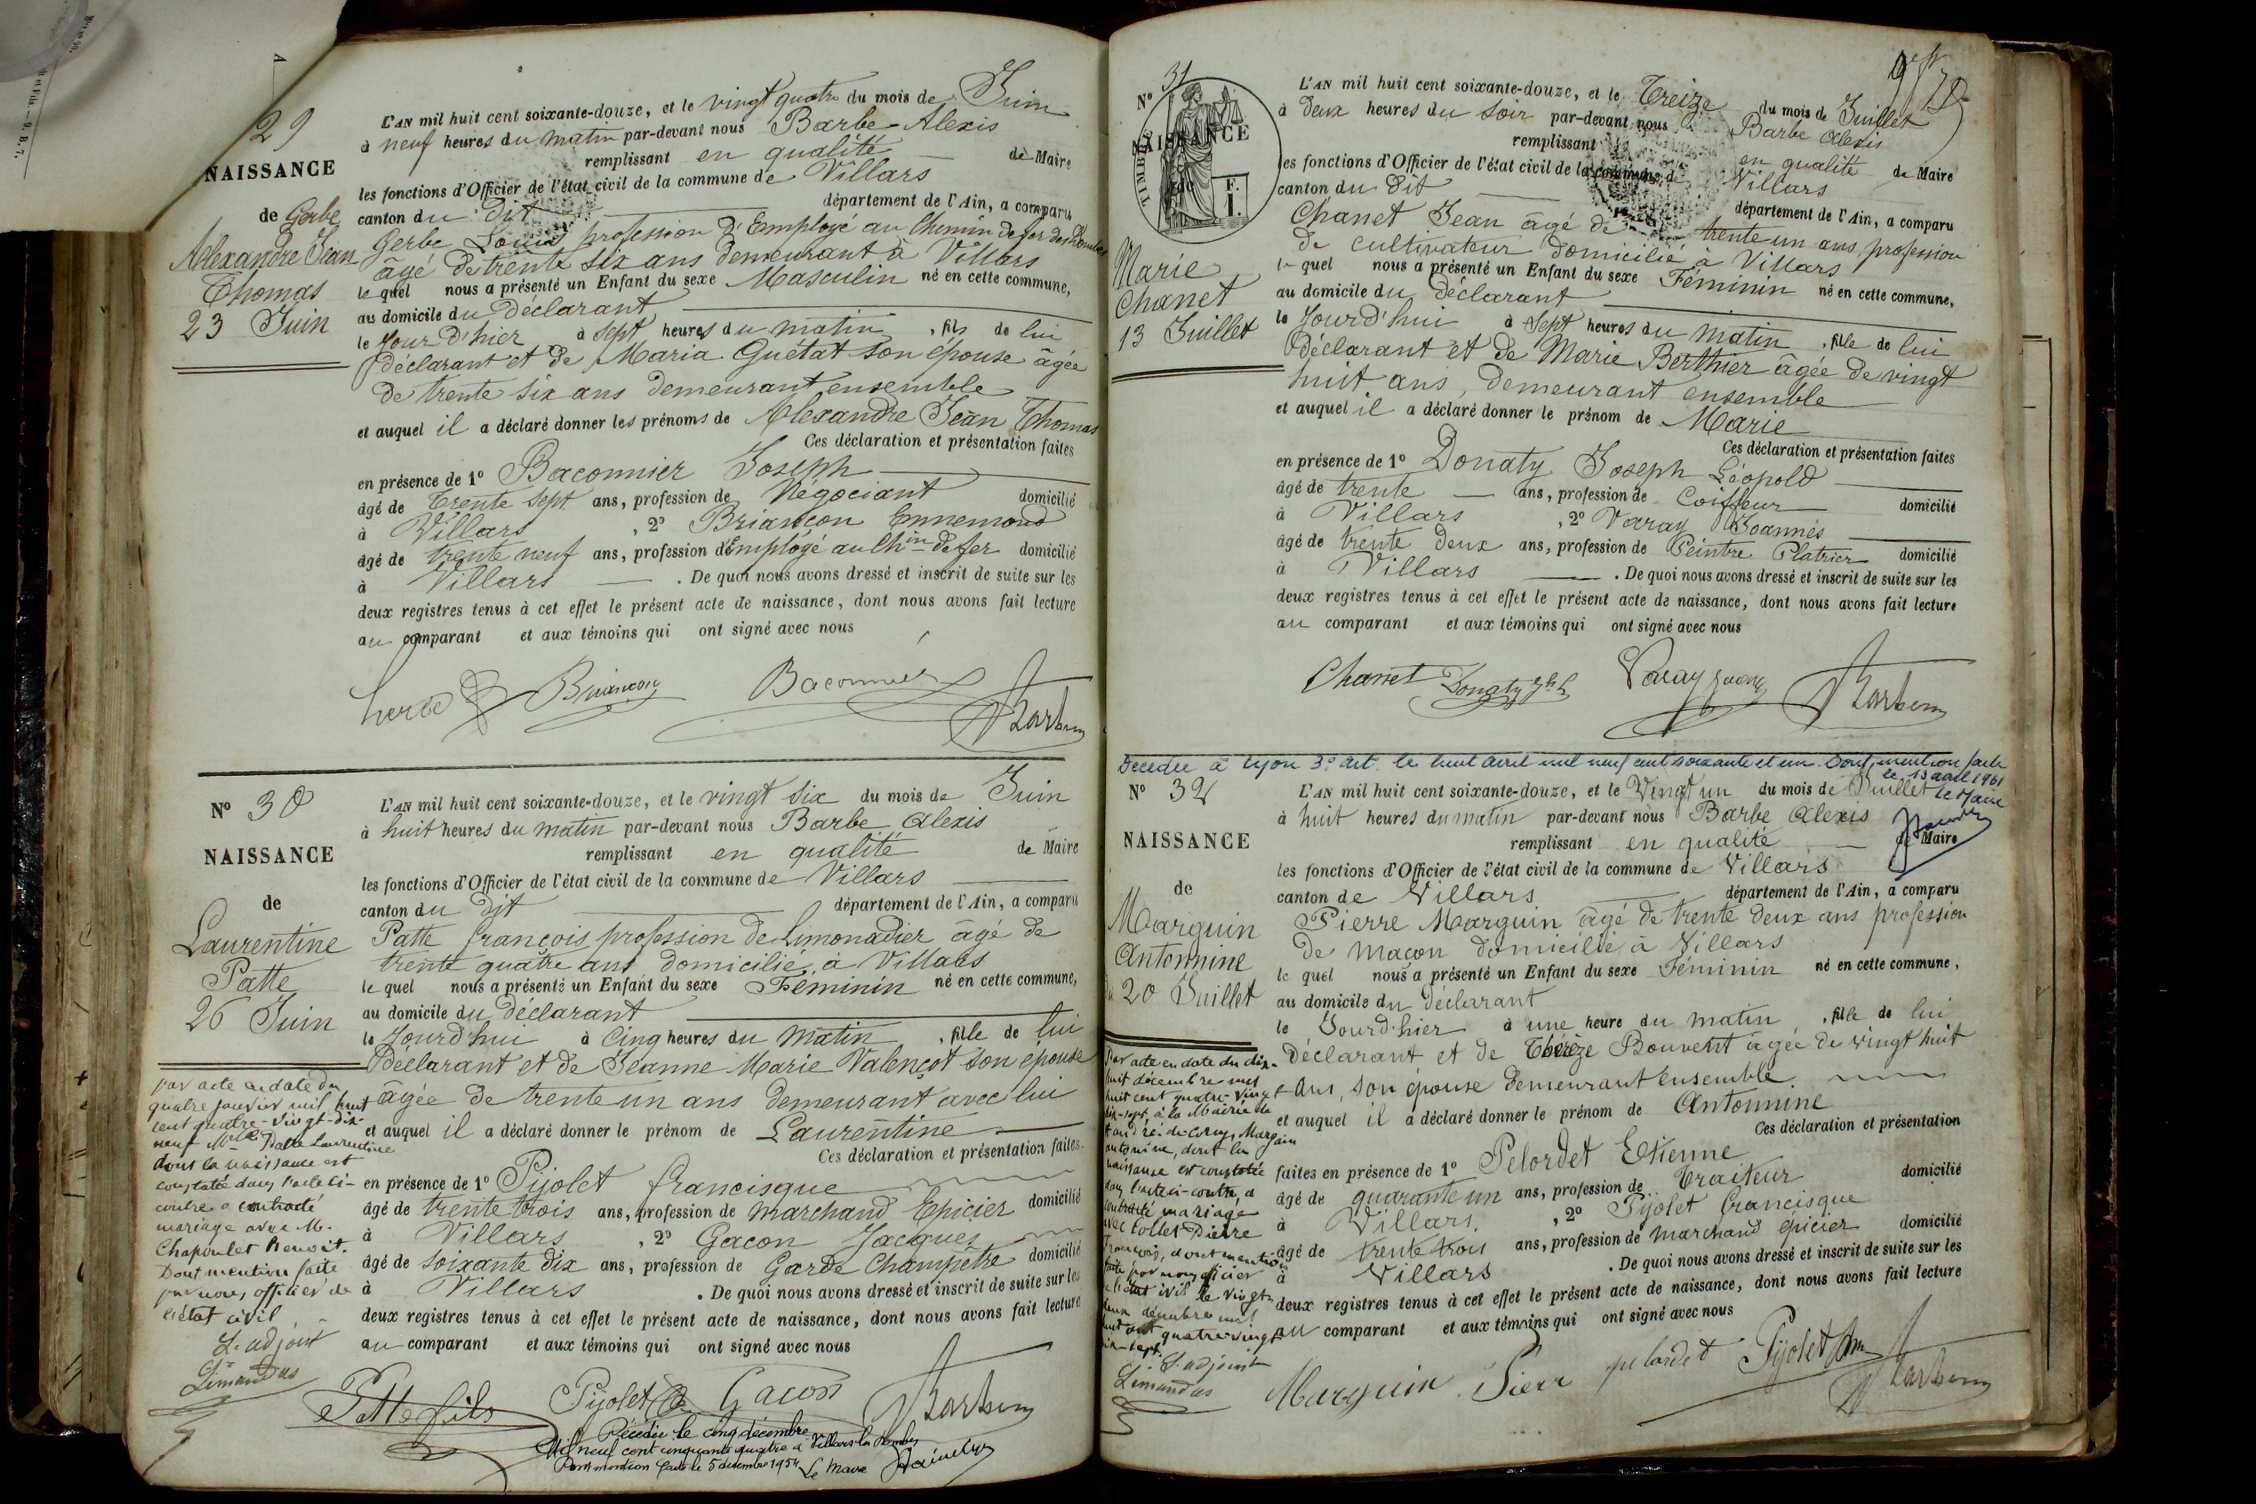 29
NAISSANCE
de Gerbe
Alexandre Jean
Thomas
23 Juin
L'AN mil huit cent soixante-douze, et le vingt quatre du mois de Juin
à neuf heures du matin par-devant nous Barbe Alexis
remplissant en qualité de Maire
les fonctions d'Officier de l'état civil de la commune de Villars
canton du dit département de l'Ain, a comparu
Gerbe Louis profession d'Employé au Chemin de fer des Dombes
âgé de trente six ans demeurant à Villars
le quel nous a présenté un Enfant du sexe Masculin né en cette commune,
au domicile du Déclarant
le Jour d'hier à sept heures du matin, fils de lui
déclarant et de Maria Guétat son épouse âgée
de trente six ans demeurant ensemble
et auquel il a déclaré donner les prénoms de Alexandre Jean Thomas
Ces déclaration et présentation faites
en présence de 1º Baconnier Joseph
âgé de trente sept ans, profession de Négociant domicilié
à Villars, 2º Briançon Ennemond
âgé de trente neuf ans, profession d'Employé au Chin de fer domicilié
à Villars. De quoi nous avons dressé et inscrit de suite sur les
deux registres tenus à cet effet le présent acte de naissance, dont nous avons fait lecture
au comparant et aux témoins qui ont signé avec nous
Gerbe Briançon Baconnier A Barbe
Nº 30
NAISSANCE
de
Laurentine
Patte
26 Juin
L'AN mil huit cent soixante-douze, et le vingt six du mois de Juin
à huit heures du matin par-devant nous Barbe Alexis
remplissant en qualité de Maire
les fonctions d'Officier de l'état civil de la commune de Villars
canton du dit département de l'Ain, a comparu
Patte françois profession de Limonadier âgé de
trente quatre ans domicilié à Villars
le quel nous a présenté un Enfant du sexe Féminin né en cette commune,
au domicile du déclarant
le Jourd'hui à cinq heures du matin, fille de lui
déclarant et de Jeanne Marie Valençot son épouse
âgée de trente un ans demeurant avec lui
et auquel il a déclaré donner le prénom de Laurentine
Ces déclaration et présentation faites
en présence de 1º Pijolet francisque
âgé de trente trois ans, profession de marchand Epicier domicilié
à Villars, 2º Gacon Jacques
âgé de soixante dix ans, profession de Garde Champêtre domicilié
à Villars. De quoi nous avons dressé et inscrit de suite sur les
deux registres tenus à cet effet le présent acte de naissance, dont nous avons fait lecture
au comparant et aux témoins qui ont signé avec nous
Patte fils Pijolet Gacon A Barbe
Par acte en date du
quatre janvier mil huit
cent quatre-vingt-dix-
neuf Mlle Patte Laurentine
dont la naissance est
constatée dans l'acte ci-
contre a contracté
mariage avec M.
Chapoulet Benoit.
Dont mention faite
par nous, officier de
l'état civil
L'adjoint
Limandas
Décédée le cinq décembre
mil neuf cent cinquante quatre à Villars les Dombes
Dont mention faite le 5 décembre 1954 Le Maire
Nº 31
NAISSANCE
de
TIMBRE
F.
1.
Marie
Chanet
13 Juillet
L'AN mil huit cent soixante-douze, et le Treize du mois de Juillet
à deux heures du soir par-devant nous Barbe Alexis
remplissant en qualité de Maire
les fonctions d'Officier de l'état civil de la commune de Villars
canton du dit département de l'Ain, a comparu
Chanet Jean âgé de trente un ans profession
de cultivateur domicilié à Villars
le quel nous a présenté un Enfant du sexe Féminin né en cette commune,
au domicile du déclarant
le Jourd'hui à sept heures du matin, fille de lui
déclarant et de Marie Berthier âgée de vingt
huit ans, demeurant ensemble
et auquel il a déclaré donner le prénom de Marie
Ces déclaration et présentation faites
en présence de 1º Donaty Joseph Léopold
âgé de trente ans, profession de Coiffeur domicilié
à Villars, 2º Varay Joannès
âgé de trente deux ans, profession de Peintre Platrier domicilié
à Villars. De quoi nous avons dressé et inscrit de suite sur les
deux registres tenus à cet effet le présent acte de naissance, dont nous avons fait lecture
au comparant et aux témoins qui ont signé avec nous
Chanet Donaty Varay A Barbe
Décédée à Lyon 3e art. le huit avril mil neuf cent soixante et un. Dont mention faite
le 13 avril 1961
Le Maire
Nº 32
NAISSANCE
de
Marguin
Antonnine
du 20 Juillet
L'AN mil huit cent soixante-douze, et le Vingt un du mois de Juillet
à huit heures du matin par-devant nous Barbe Alexis
remplissant en qualité de Maire
les fonctions d'Officier de l'état civil de la commune de Villars
canton de Villars département de l'Ain, a comparu
Pierre Marguin âgé de trente deux ans profession
de maçon domicilié à Villars
le quel nous a présenté un Enfant du sexe Féminin né en cette commune,
au domicile du déclarant
le Jourd'hier à une heure du matin, fille de lui
déclarant et de Bouvent âgée de vingt huit
ans, son épouse demeurant ensemble.
et auquel il a déclaré donner le prénom de Antonnine
Ces déclaration et présentation
faites en présence de 1º Pelordet Etienne
âgé de quarante un ans, profession de Traiteur domicilié
à Villars, 2º Pijolet francisque
âgé de trente trois ans, profession de marchand épicier domicilié
à Villars. De quoi nous avons dressé et inscrit de suite sur les
deux registres tenus à cet effet le présent acte de naissance, dont nous avons fait lecture
au comparant et aux témoins qui ont signé avec nous
Marguin Pierr pelordet Pijolet A Barbe
Par acte en date du dix-
huit décembre mil
huit cent quatre-vingt
dix-sept, à la Mairie de
St André-de-Corcy, Marguin
antonine, dont la
naissance est constatée
dans l'acte ci-contre, a
contracté mariage
avec Collet Pierre
François, dont mention
faite par nous officier
de l'état civil le vingt-
deux décembre mil
huit cent quatre-vingt
dix-sept.
L'adjoint
Limandas